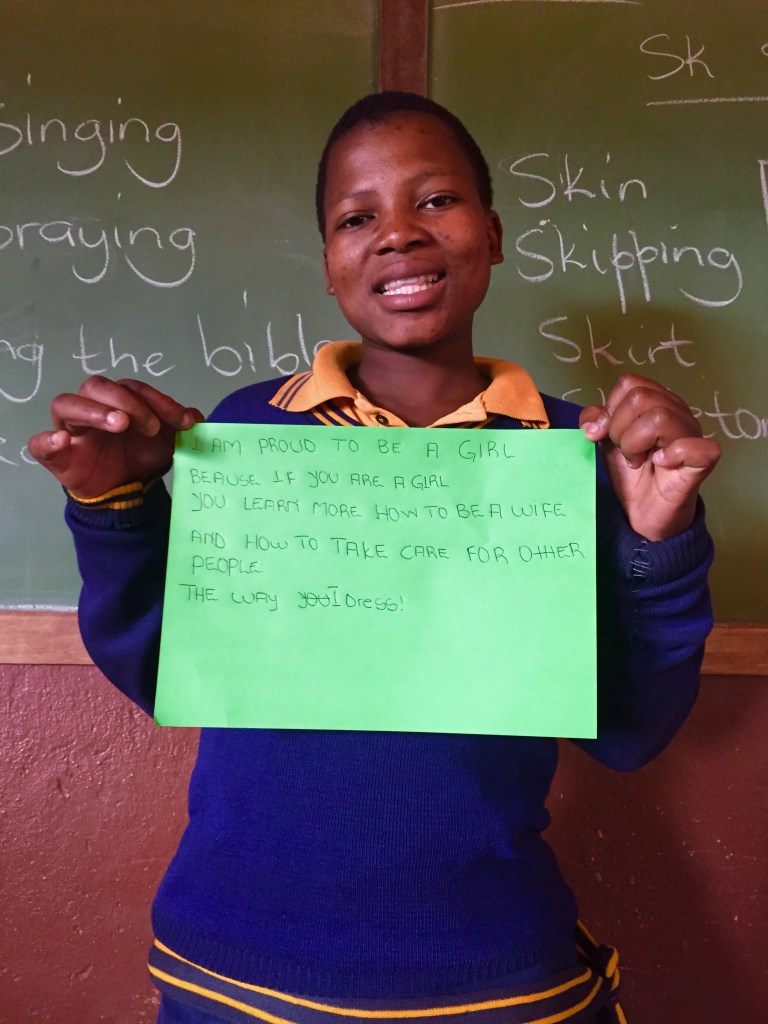 Singing
praying
the bible
Sk
Skin
Skipping
Skirt
I AM PROUD TO BE A GIRL
BEAUSE IF YOU ARE A GIRL
YOU LEARN MORE HOW TO BE A WIFE
AND HOW TO TAKE CARE FOR OTHER
PEOPLE
THE WAY I Dress!